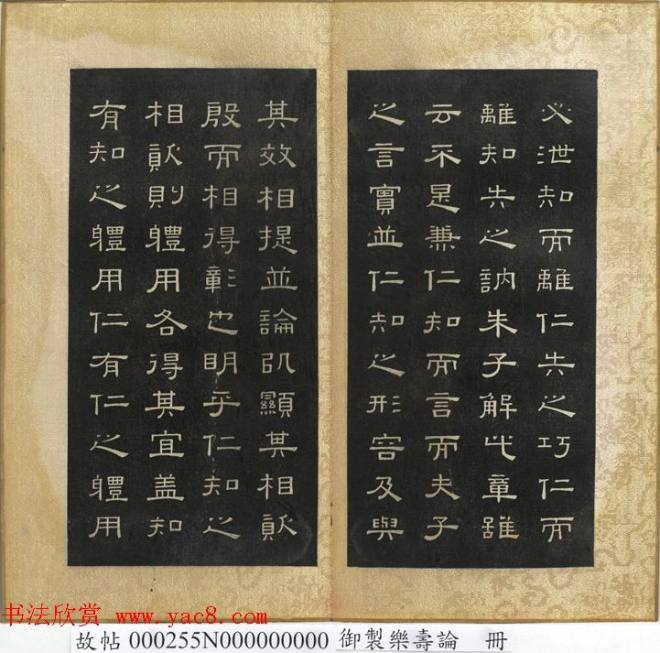 必泄知而離仁失之巧仁而
離知失之訥朱子解此章雖
云不是兼仁知而言而夫子
之言實並仁知之形容及與
其效相提並論以顯其相須
殷而相得彰也明乎仁知之
相須則體用各得其宜盖知
有知之體用仁有仁之體用
书法欣赏 www.yac8.com
故帖 000255N000000000 御製樂壽論 冊